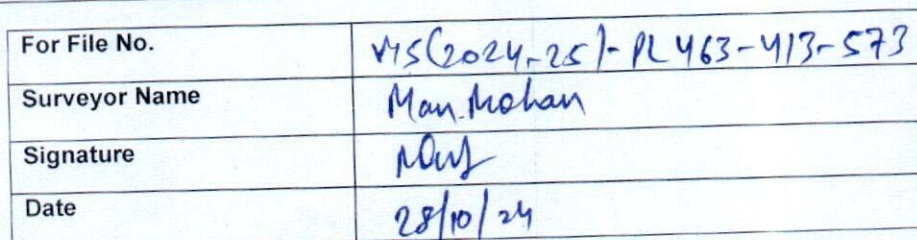 For File No. VIS(2024-25)-PL463-413-573
Surveyor Name Man Mohan
Signature
Date 28/10/24